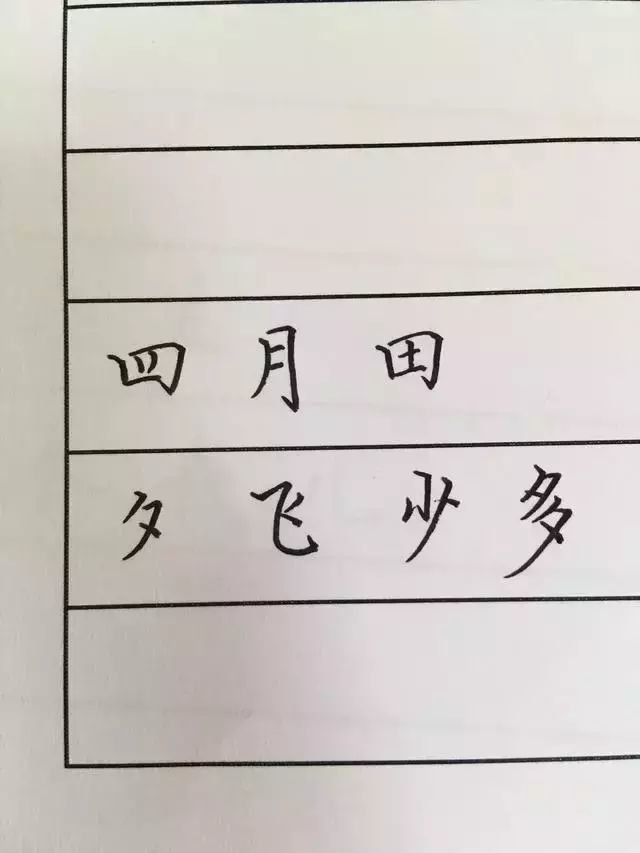 四月田
夕飞少多